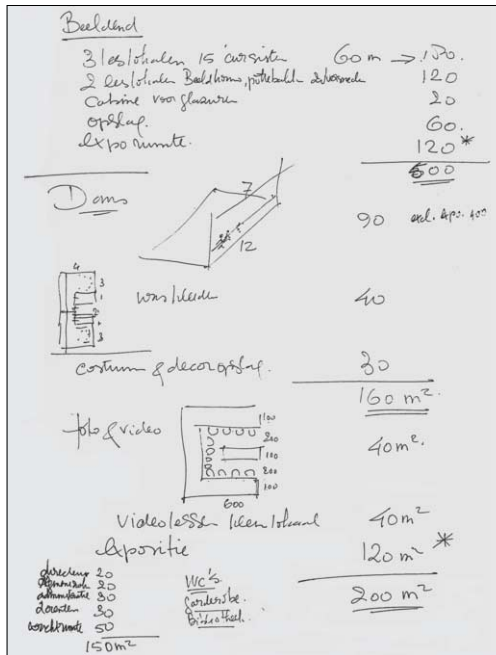 Beeldend
3 leslokalen 15 cursisten 60 m → 180.
2 leslokalen Beeldhouw, 120
Cabine voor glazuren 20
opslag. 60.
exporuimte. 120*
500
Dans
7
12
90 excl. 400
4
3
1
3
was/kleden 40
costuum & decoropslag. 30
160 m².
foto & video 40m².
100
200
100
200
100
600
Videolessen klein lokaal 40m²
expositie 120m² *
200 m²
directeur 20
20
administratie 30
docenten 30
50
150m²
WC's
Garderobe.
Bibliotheek.